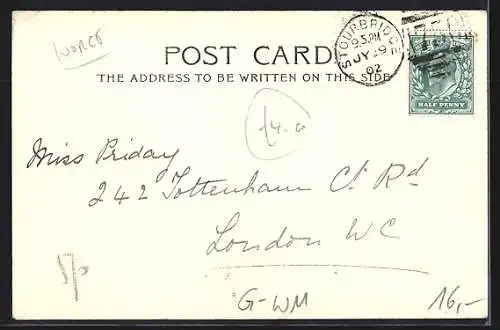 Worcs
POST CARD
THE ADDRESS TO BE WRITTEN ON THIS SIDE
STOURBRIDGE
9.5 PM
JY 29
02
HALF PENNY
£4.00
Miss Priday
242 Tottenham Ct Rd
London WC
G-WM
16,-